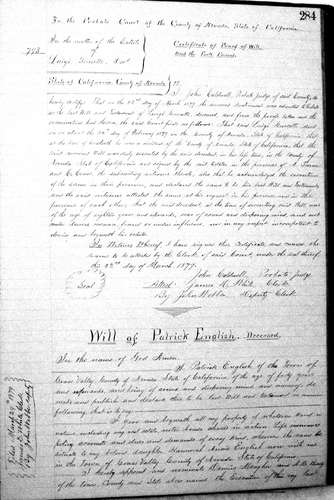 284
In the Probate Court of the County of Nevada, State of California
In the matter of the Estate
of
Luigi
Certificate of Proof of Will
and the Facts Found
State of California County of Nevada
I, John Caldwell, Probate Judge of said County do
hereby certify: That on the 22nd day of March 1879 the annexed instrument was admitted to Probate
as the last Will and Testament of Luigi deceased, and from the proofs taken and the
examination had therein, the said Court finds as follows: That Luigi died
on or about the day of February 1879 in the County of Nevada, State of California; that
at the time of his death he was a resident of the County of Nevada, State of California; that the
said annexed Will was executed by the said decedent in his life time, in the County of
Nevada State of California and signed by the said testator in the presence of
the subscribing witnesses thereto; also that he acknowledged the execution
of the same in their presence, and declared the same to be his last Will and Testament,
and the said witnesses attested the same at his request in his presence and in the
presence of each other; that the said decedent at the time of executing said Will was
of the age of eighteen years and upwards, was of sound and disposing mind, and not
under duress, menace, fraud or undue influence, nor in any respect incompetent to
devise and bequeath his estate.
In Witness Whereof, I have signed this Certificate and caused the
same to be attested by the Clerk of said Court, under the seal thereof,
this 22nd day of March 1879.
John Caldwell, Probate Judge
Seal
Attest: James D. White, Clerk
By John Webber, Deputy Clerk
Will of Patrick English, Deceased.
In the name of God Amen.
I Patrick English of the Town of
Grass Valley, County of Nevada State of California, of the age of forty years
and upwards, and being of sound and disposing mind and memory do
make and publish and declare this to be my last Will and testament in manner
following, that is to say:
I Give and bequeath all my property of whatever kind or
nature, including any real estate, notes bonds stocks in action, life insurance
policy accounts and dues and demands of every kind wherever the same be
situate to my beloved daughter Hannorah Annie English now with me
in the Town of Grass Valley County of Nevada, State of California.
I hereby appoint and nominate Meagher and
of the town, County and State above named the Executors of this my last
Filed March 24th 1879
James D. White Clerk
By John Webber, Deputy